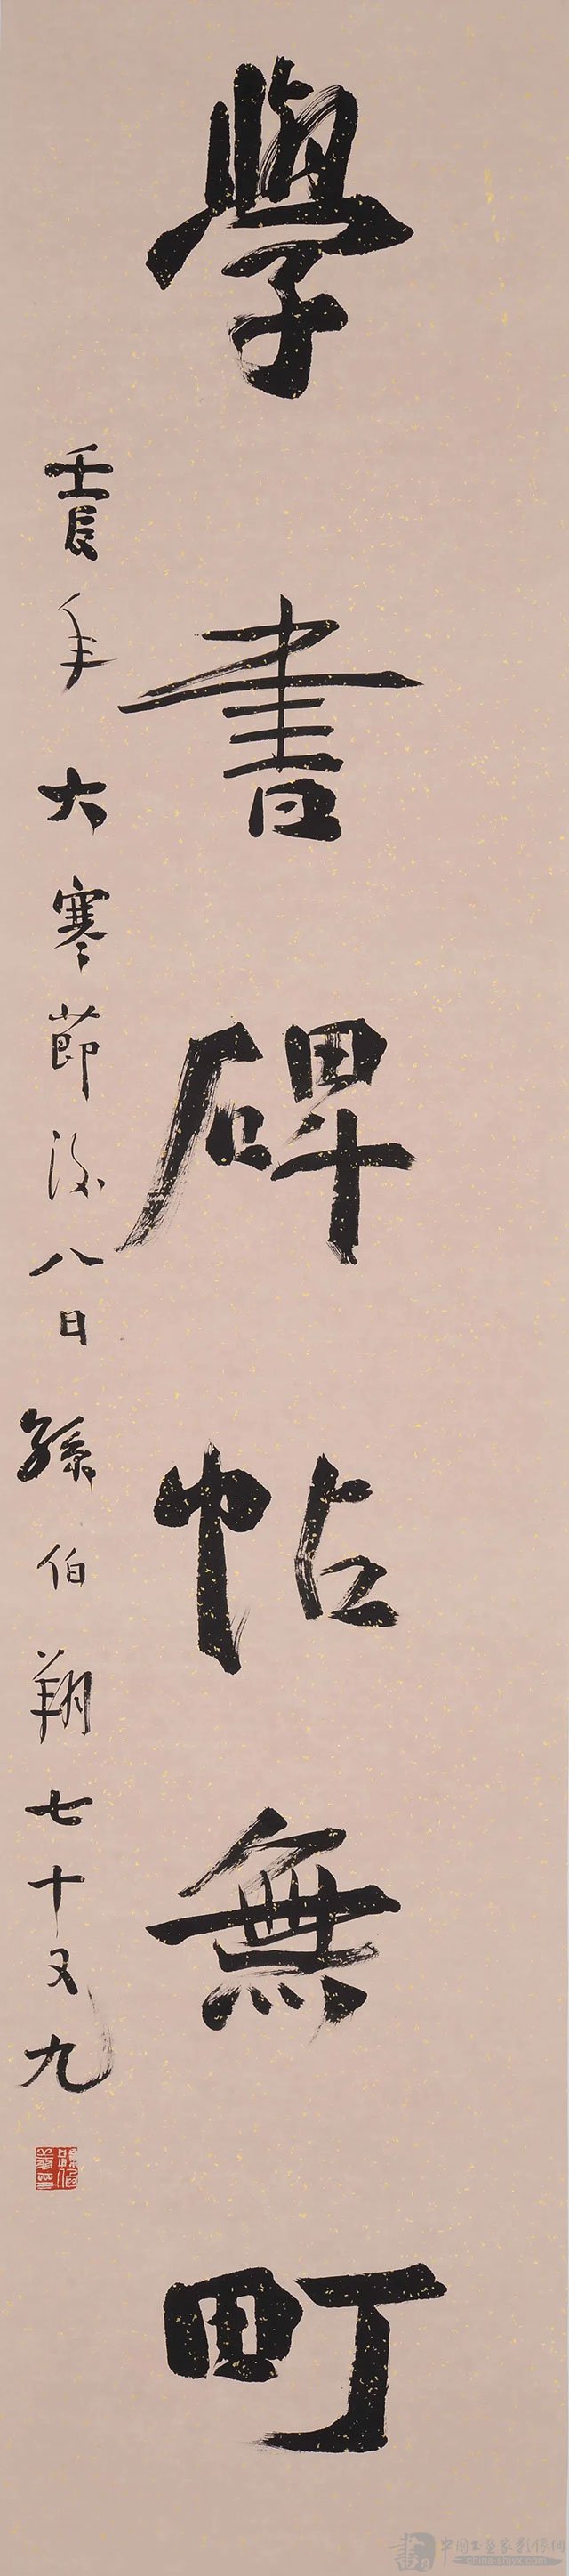 學書碑帖無町
壬辰年大寒節後八日孫伯翔七十又九
中国书画家影像网